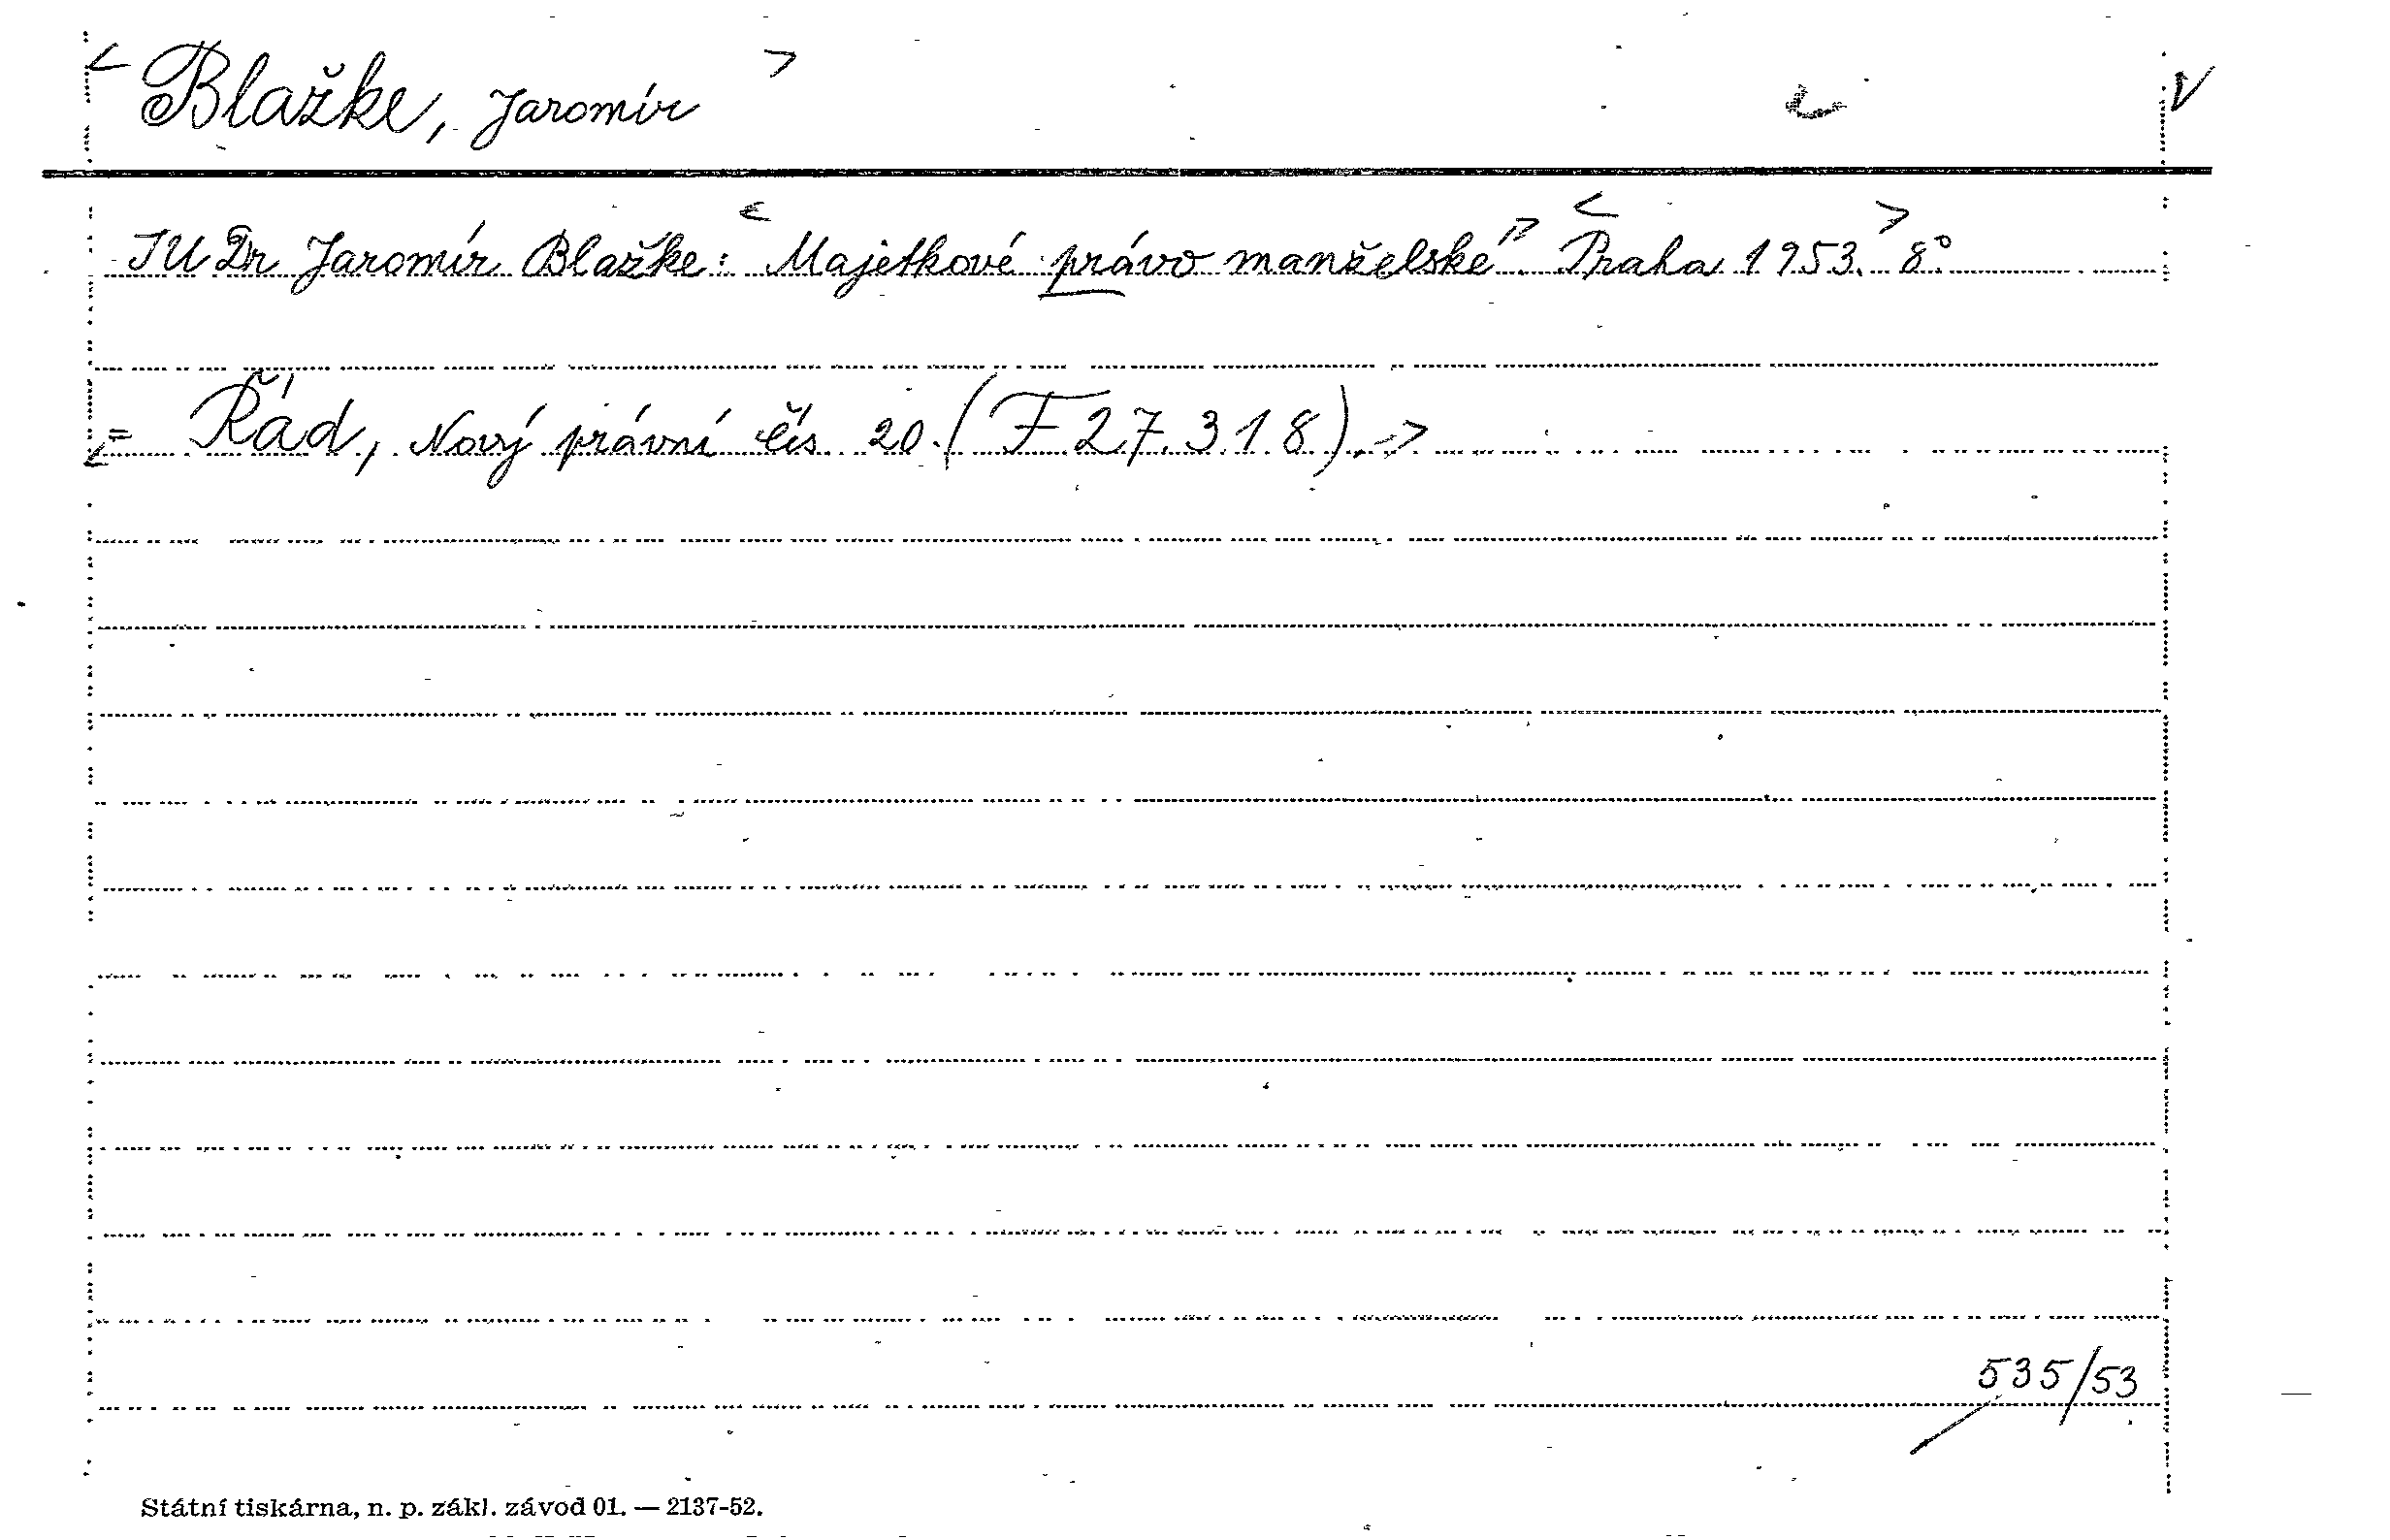 < Blažke, Jaromír > V
JUDr Jaromír Blažke: <Majetkové právo manželské.> <Praha 1953.> 8°
<= Řád, Nový právní čís. 20. (F 27.318).>
535/53
Státní tiskárna, n. p. zákl. závod 01. — 2137-52.